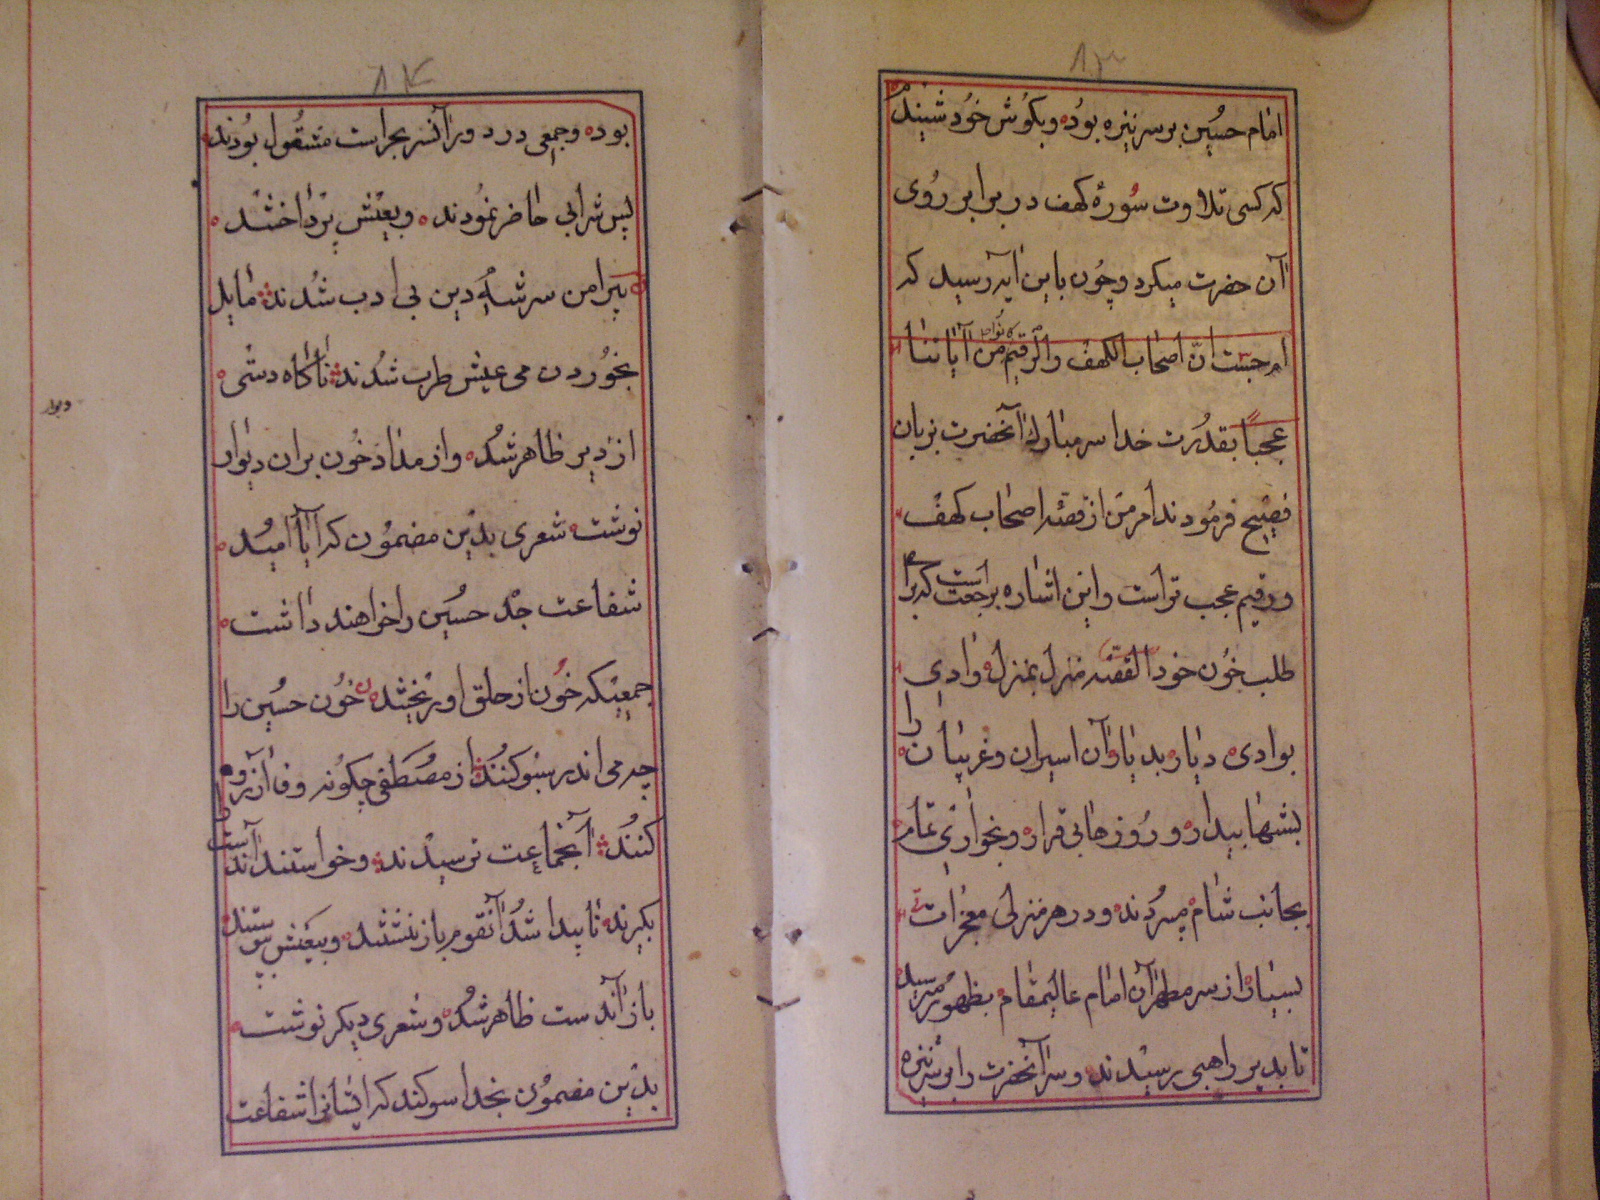 ۸۳
امام حسین بر سر نیزه بوده و بگوش خود شنیدم
که کسی تلاوت سورهٔ کهف در برابر روی
آن حضرت میکرد و چون باین آیه رسید که
ام حسبت ان اصحاب الکهف والرقیم کانوا من آیاتنا
عجبا بقدرت خدا سر مبارک آنحضرت بزبان
فصیح فرمودند امر من از قصه اصحاب کهف
و رقیم عجب تر است و این اشاره برجعت است که برای
طلب خون خود القصه منزل بمنزل وادی
بوادی دیار بدیار آن اسیران و غریبان را
بشبها بیدار و روزها بی قرار و بخواری تمام
بجانب شام میبردند و در هر منزلی معجزات
بسیار از سر مطهر آن امام عالیمقام بظهور میرسید
تا بدیر راهبی رسیدند و سر آنحضرت را بر سر نیزه
۸۴
بوده و جمعی در دور آنسر بحراست مشغول بودند
پس شرابی حاضر نمودند و بعیش پرداختند
پیرامن سر شه دین بی ادب شدند مایل
بخوردن می عیش طرب شدند ناگاه دستی
از دیر ظاهر شد و از مداد خون بران دیوار
دیوار
نوشت شعری بدین مضمون که آیا امید
شفاعت جد حسین را خواهند داشت
جمعیکه خون از حلق او ریختند خون حسین را
چه می اندر سبو کنند از مصطفی چگونه وفا آرزو
کنند آنجماعت ترسیدند و خواستند آندست را
بگیرند ناپیدا شد آنقوم باز نشستند و بعیش پیوستند
باز آندست ظاهر شد و شعری دیگر نوشت
بدین مضمون بخدا سوگند که ایشانرا شفاعت